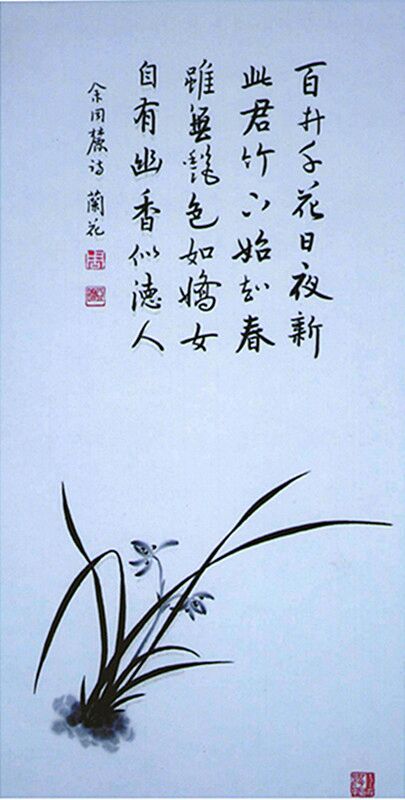 百卉千花日夜新
此君竹下始知春
雖無豔色如嬌女
自有幽香似德人
余同麓诗 蘭花